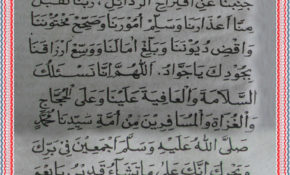 جنبنا عن اقتراح الرذائل، ربنا تقبل
منا أعذارنا وسلم أمورنا وصحح مجنوننا
واقض ديوننا وبلغ آمالنا ووسع أرزاقنا
بجودك يا جواد. اللهم إنا نسئلك
السلامة والعافية علينا وعلى الحجاج
والغزاة والمسافرين من أمة سيدنا محمد
صلى الله عليه وسلم أجمعين في برك
وبحرك إنك على ما تشاء قدير يا نعم